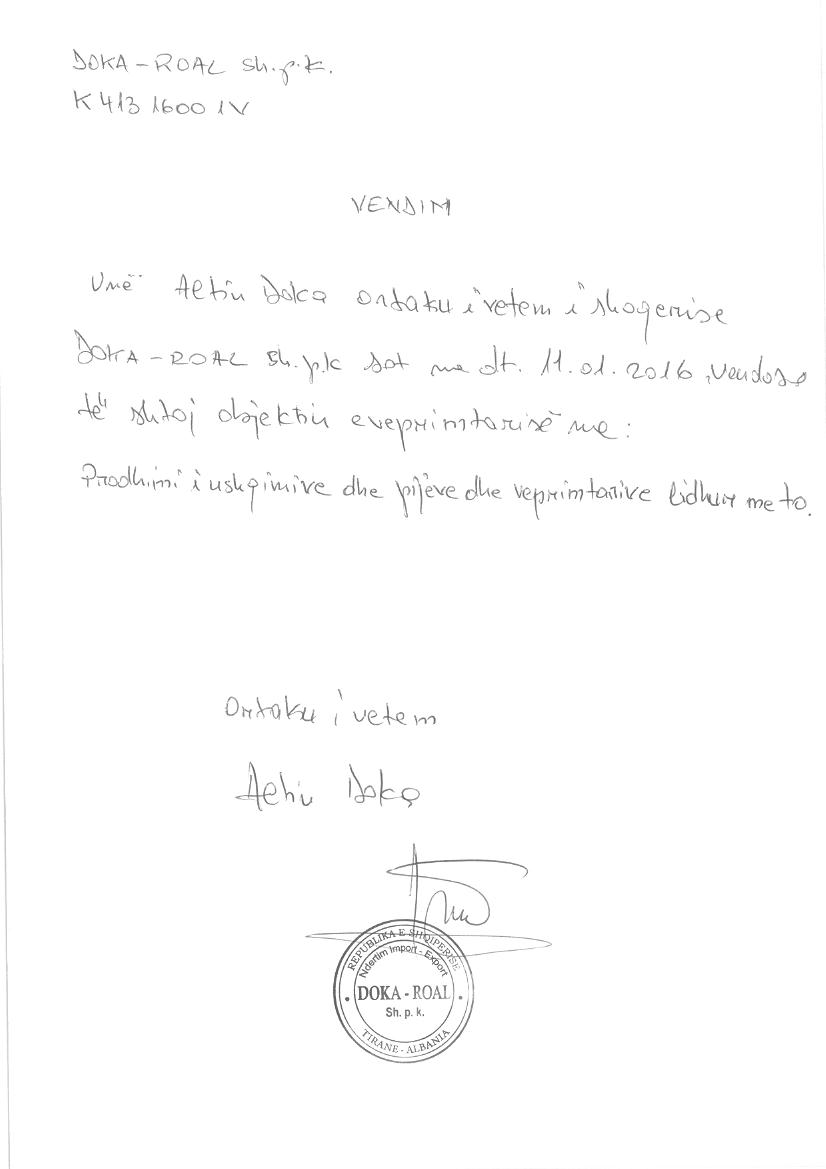 DOKA - ROAL sh.p.k.
K 413 1600 1 V
VENDIM
Unë Altin Doka ortaku i vetem i shoqerise
DOKA - ROAL sh.p.k sot me dt. 11.01.2016, vendosa
të shtoj objektin e veprimtarisë me:
Prodhimi i ushqimive dhe pijëve dhe veprimtarive lidhur me to.
Ortaku i vetem
Altin Doka
REPUBLIKA E SHQIPERISE
Ndertim Import - Export
DOKA - ROAL
Sh. p. k.
TIRANE - ALBANIA